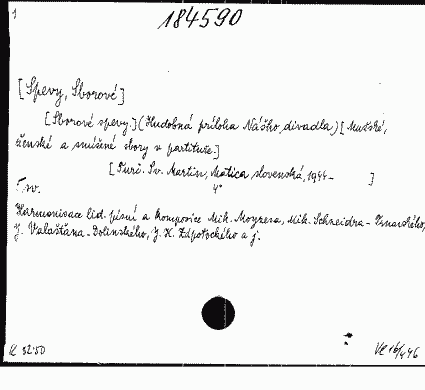 1
184590
[Spevy, Sborové]
[Sborové spevy.] (Hudobná príloha Nášho divadla) [Mužské,
ženské a smíšené sbory v partituře.]
[Turč. Sv. Martin, Matica slovenská, 1944- ]
sv. 4°
Harmonisace lid. písní a komposice Mik. Moyzesa, Mik. Schneidra-Trnavského,
J. Valašťana-Dolinského, J. K. Zápotockého a j.